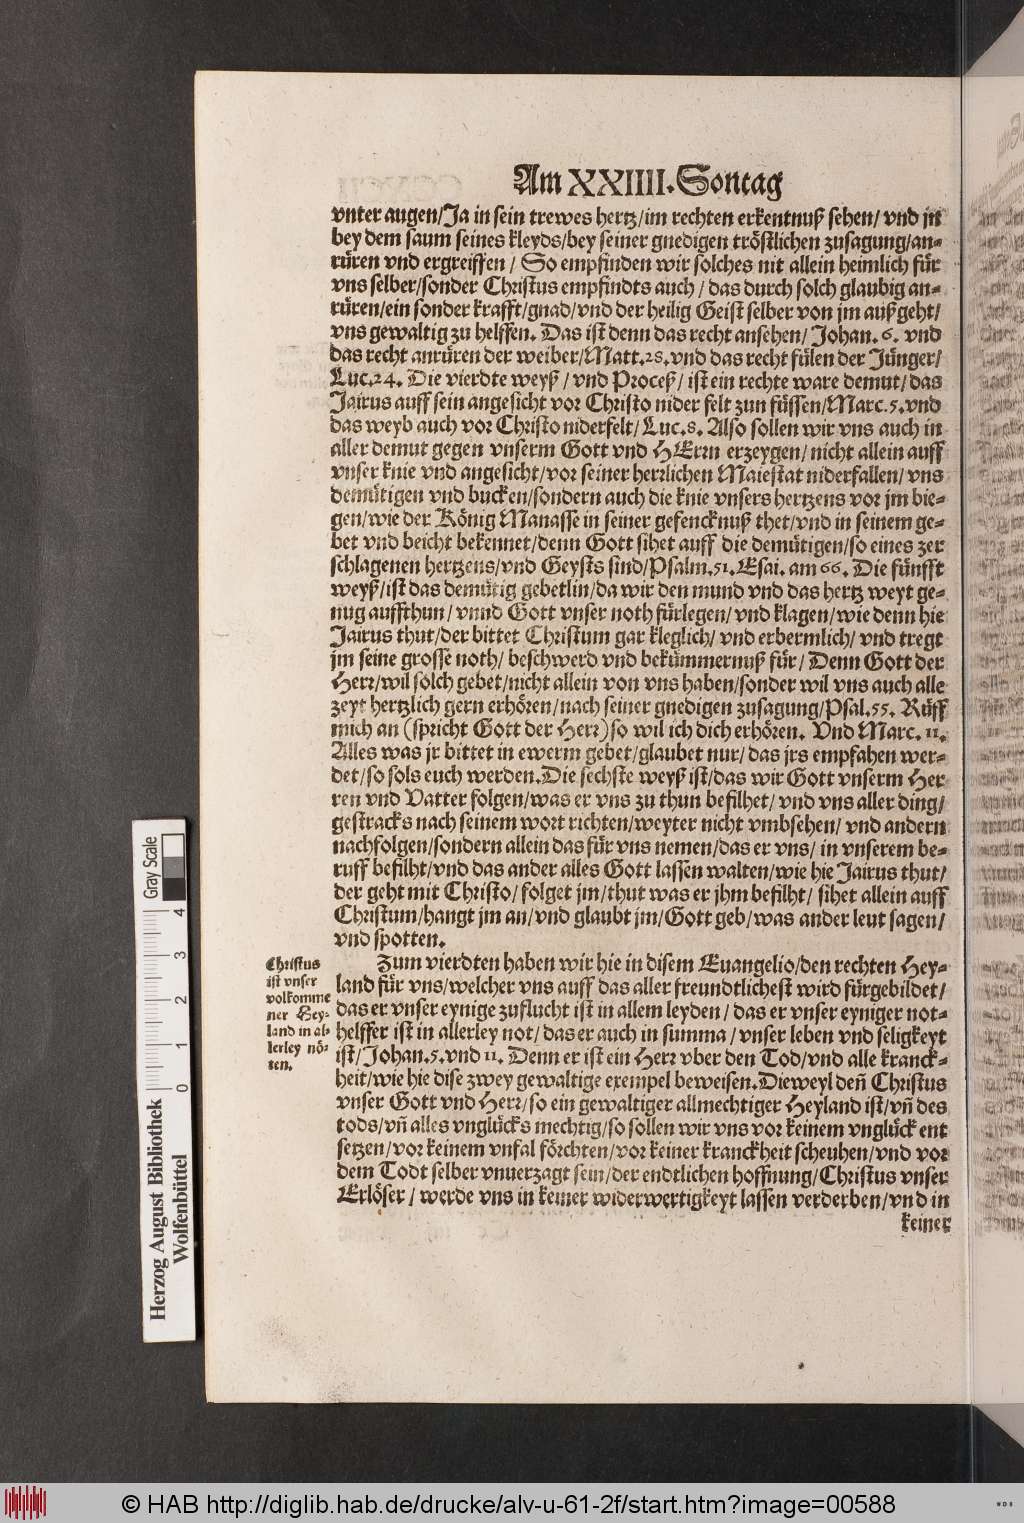 Am XXIIII. Sontag
vnter augen/Ja in sein trewes hertz/im rechten erkentnuß sehen/ vnd jn
bey dem saum seines kleyds/bey seiner gnedigen tröstlichen zusagung/an-
rüren vnd ergreiffen/ So empfinden wir solches nit allein heimlich für
vns selber/sonder Christus empfindts auch/ das durch solch glaubig an-
rüren/ein sonder krafft/gnad/vnd der heilig Geist selber von jm außgeht/
vns gewaltig zu helffen. Das ist denn das recht ansehen/ Johan. 6. vnd
das recht anrüren der weiber/Matt.28.vnd das recht fülen der Jünger/
Luc.24. Die vierdte weyß/ vnd Proceß/ ist ein rechte ware demut/ das
Jairus auff sein angesicht vor Christo nider felt zun füssen/Marc.5.vnd
das weyb auch vor Christo niderfelt/ Luc.8. Also sollen wir vns auch in
aller demut gegen vnserm Gott vnd HErrn erzeygen/ nicht allein auff
vnser knie vnd angesicht/vor seiner herrlichen Maiestat niderfallen/ vns
demütigen vnd bucken/sondern auch die knie vnsers hertzens vor jm bie-
gen/wie der König Manasse in seiner gefencknuß thet/vnd in seinem ge-
bet vnd beicht bekennet/denn Gott sihet auff die demütigen/so eines zer
schlagenen hertzens/vnd Geysts sind/Psalm.51.Esai. am 66. Die fünfft
weyß/ist das demütig gebetlin/da wir den mund vnd das hertz weyt ge-
nug auffthun/ vnnd Gott vnser noth fürlegen/ vnd klagen/ wie denn hie
Jairus thut/der bittet Christum gar kleglich/ vnd erbermlich/ vnd tregt
jm seine grosse noth/ beschwerd vnd bekümmernuß für/ Denn Gott der
Herr/wil solch gebet/nicht allein von vns haben/sonder wil vns auch alle
zeyt hertzlich gern erhören/nach seiner gnedigen zusagung/Psal.55. Rüff
mich an (spricht Gott der Herr)so wil ich dich erhören. Vnd Marc. 11.
Alles was jr bittet in ewerm gebet/glaubet nur/ das jrs empfahen wer-
det/so sols euch werden.Die sechste weyß ist/das wir Gott vnserm Her
ren vnd Vatter folgen/was er vns zu thun befilhet/ vnd vns aller ding/
gestracks nach seinem wort richten/weyter nicht vmbsehen/ vnd andern
nachfolgen/sondern allein das für vns nemen/das er vns/ in vnserem be-
ruff befilht/vnd das ander alles Gott lassen walten/wie hie Jairus thut/
der geht mit Christo/ folget jm/thut was er jhm befilht/ sihet allein auff
Christum/hangt jm an/vnd glaubt jm/Gott geb/was ander leut sagen/
vnd spotten.
Christus
ist vnser
volkomme
ner Hey-
land in al-
lerley nö-
ten.
Zum vierdten haben wir hie in disem Euangelio/den rechten Hey-
land für vns/welcher vns auff das aller freundtlichest wird fürgebildet/
das er vnser eynige zuflucht ist in allem leyden/ das er vnser eyniger not-
helffer ist in allerley not/ das er auch in summa/ vnser leben vnd seligkeyt
ist/Johan.5.vnd 11. Denn er ist ein Herr vber den Tod/vnd alle kranck-
heit/wie hie dise zwey gewaltige exempel beweisen.Dieweyl deñ Christus
vnser Gott vnd Herr/so ein gewaltiger allmechtiger Heyland ist/vñ des
tods/vñ alles vnglücks mechtig/so sollen wir vns vor keinem vnglück ent
setzen/vor keinem vnfal förchten/vor keiner kranckheit scheuhen/vnd vor
dem Todt selber vnuerzagt sein/der endtlichen hoffnung/Christus vnser
Erlöser/ werde vns in keiner widerwertigkeyt lassen verderben/vnd in
keiner
Herzog August Bibliothek
Wolfenbüttel
0 1 2 3 4
Gray Scale
© HAB http://diglib.hab.de/drucke/alv-u-61-2f/start.htm?image=00588